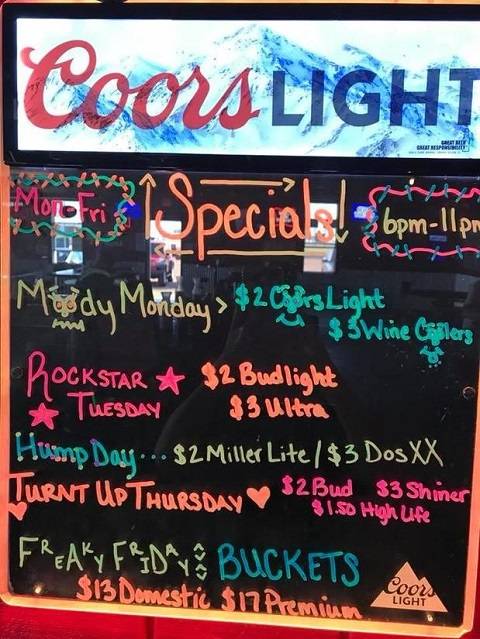 Coors LIGHT
GREAT BEER
GREAT RESPONSIBILITY
Mon-Fri Specials! 6pm-11pm
Moody Monday > $2 Coors Light
$3 Wine Coolers
ROCKSTAR $2 Budlight
TUESDAY $3 Ultra
Hump Day... $2 Miller Lite / $3 Dos XX
TURNT UP THURSDAY $2 Bud $3 Shiner
$1.50 High Life
FREAKY FRIDAY BUCKETS
$13 Domestic $17 Premium
Coors
LIGHT